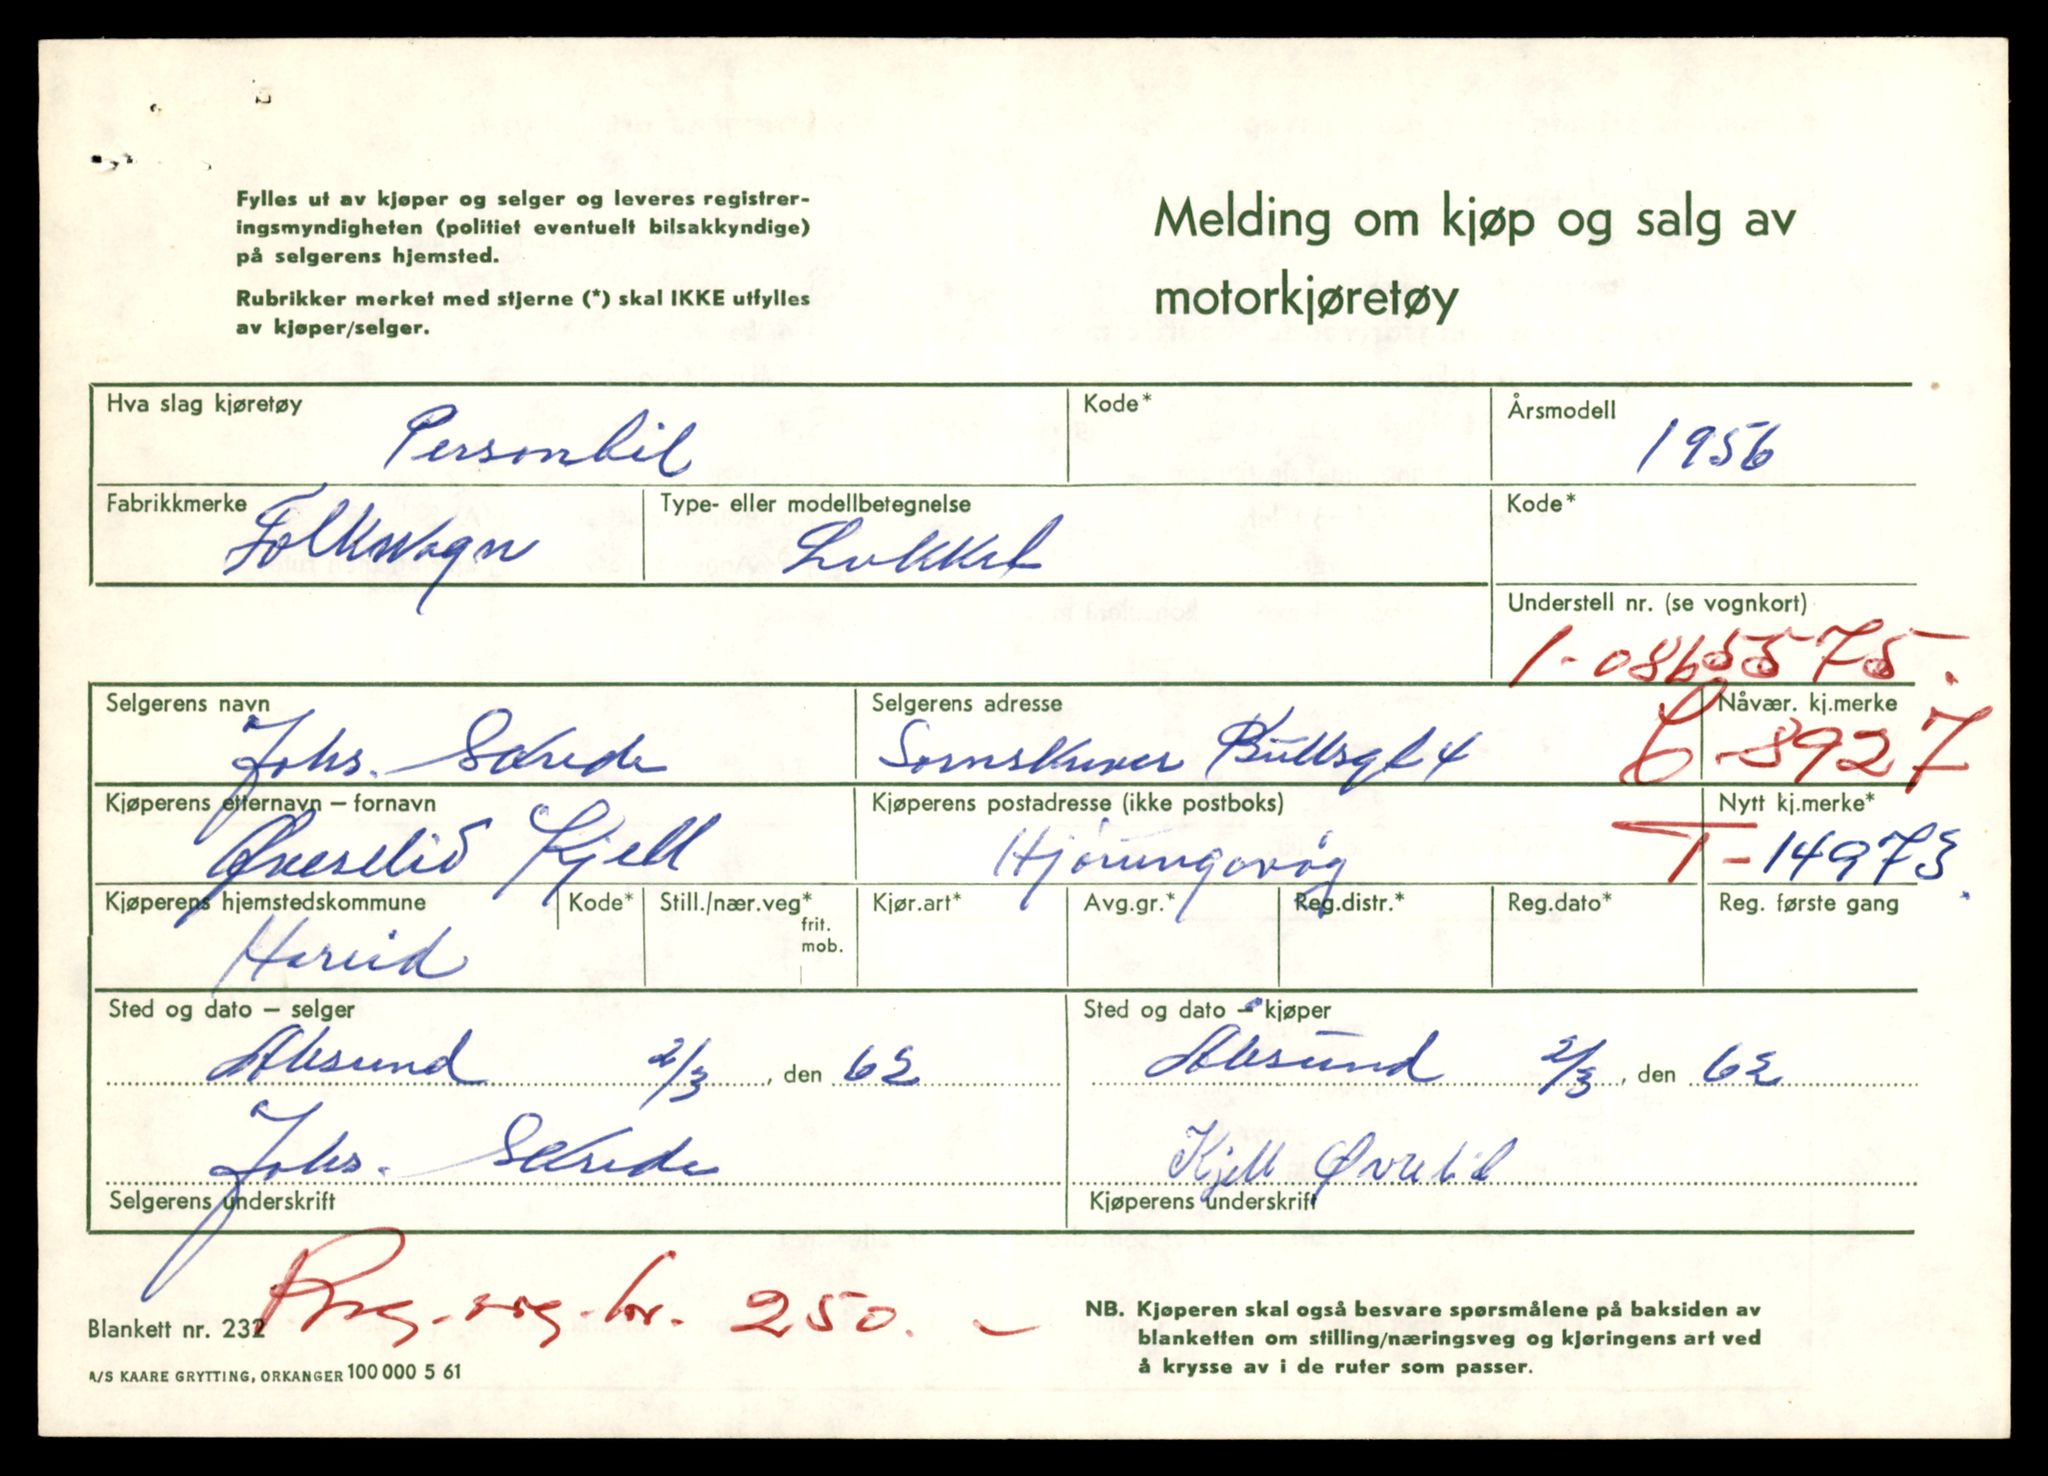 Fylles ut av kjøper og selger og leveres registrer-
ingsmyndigheten (politiet eventuelt bilsakkyndige)
på selgerens hjemsted.
Rubrikker merket med stjerne (*) skal IKKE utfylles
av kjøper/selger.
Melding om kjøp og salg av
motorkjøretøy
Hva slag kjøretøy
Personbil
Kode*
Årsmodell
1956
Fabrikkmerke
Folkvogn
Type- eller modellbetegnelse
Lukket
Kode*
Understell nr. (se vognkort)
1-0865575.
Selgerens navn
Johs. Skrede
Selgerens adresse
Bullsgt 4
Nåvær. kj.merke
-8927
Kjøperens etternavn – fornavn
Øvrelid Kjell
Kjøperens postadresse (ikke postboks)
Hjørungavåg
Nytt kj.merke*
T-14973.
Kjøperens hjemstedskommune
Hareid
Kode*
Still./nær.veg*
frit.
mob.
Kjør.art*
Avg.gr.*
Reg.distr.*
Reg.dato*
Reg. første gang
Sted og dato – selger
Ålesund 2/3, den 62
Sted og dato – kjøper
Ålesund 2/3, den 62
Johs. Skrede
Selgerens underskrift
Kjell Øvrelid
Kjøperens underskrift
250. -
Blankett nr. 232
A/S KAARE GRYTTING, ORKANGER 100 000 5 61
NB. Kjøperen skal også besvare spørsmålene på baksiden av
blanketten om stilling/næringsveg og kjøringens art ved
å krysse av i de ruter som passer.